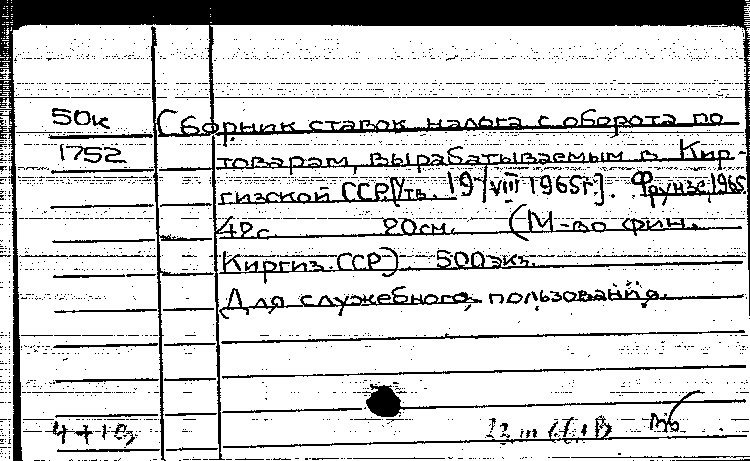 50к Сборник ставок налога с оборота по
1752 товарам, вырабатываемым в Кир-
гизской ССР. [Утв. 19/VIII 1965г]. Фрунзе, 1965.
42с 20см. (М-во фин.
Киргиз. ССР) 500 экз.
Для служебного пользования.
4+1э